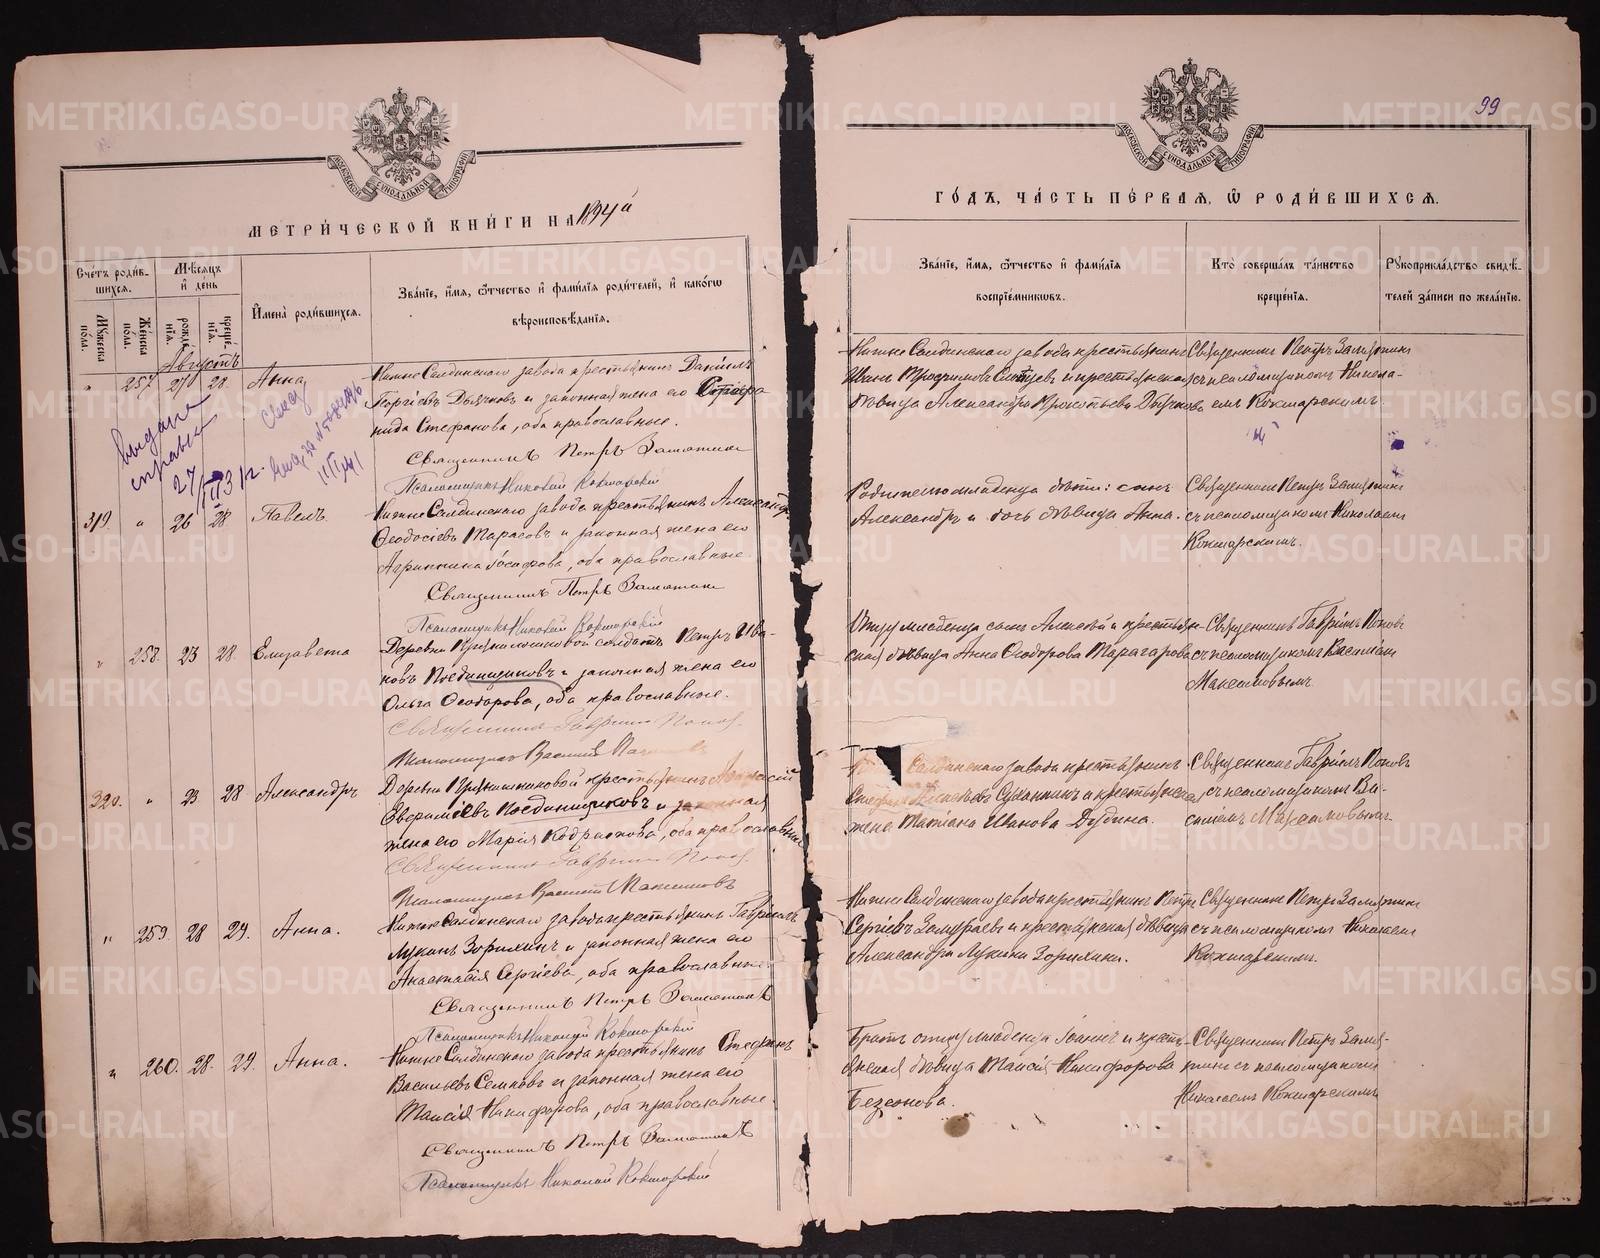 99
МОСКОВСКОЙ СѴНОДАЛЬНОЙ ТИПОГРАФІИ
МОСКОВСКОЙ СѴНОДАЛЬНОЙ ТИПОГРАФІИ
МЕТРИ́ЧЕСКОЙ КНИ́ГИ НА 1894й
ГО́ДЪ, ЧА́СТЬ ПЕ́РВАЯ, Ѽ РОДИ́ВШИХСЯ.
Сче́тъ роди́в-
шихся.
Мѣ́сяцъ
и҆ де́нь
И҆мена̀ роди́вшихся.
Зва́нїе, и҆́мя, ѻ҆́тчество и҆ фами́лїя роди́телей, и҆ како́гѡ
вѣроисповѣ́данїя.
Мꙋ́жеска
по́ла.
Же́нска
по́ла.
рожде́-
нїя.
креще́-
нїя.
Зва́нїе, и҆́мя, ѻ҆́тчество и҆ фами́лїя
воспрїе́мникѡвъ.
Кто̀ соверша́лъ та́инство
креще́нїя.
Рꙋкоприкла́дство свидѣ́-
телей за́писи по жела́нїю.
Августъ
" 257. 27 28. Анна
Нижне Салдинскаго завода крестьянинъ Данiилъ
Георгiевъ Дьячковъ и законная жена его
нида Стефанова, оба православные.
Священникъ Петръ Замятинъ
Псаломщикъ Николай Кокшарскiй
Нижне Салдинскаго завода крестьянинъ
Иванъ Трофимовъ и крестьянская
дѣвица Александра Прокопьева Дьячкова
Священникъ Петръ Замятинъ
съ псаломщикомъ Никола-
емъ Кокшарскимъ.
выдана
справка
27/III 31 г.
319. " 26 28 Павелъ
Нижне Салдинскаго завода крестьянинъ Александръ
Ѳеодосiевъ Тарасовъ и законная жена его
Агриппина Iосифова, оба православные.
Священникъ Петръ Замятинъ
Псаломщикъ Николай Кокшарскiй
Родителю младенца дѣти: сынъ
Александръ и дочь дѣвица Анна.
Священникъ Петръ Замятинъ
съ псаломщикомъ Николаемъ
Кокшарскимъ.
" 258. 23 28. Елизавета
Деревни солдатъ Петръ Ива-
новъ Поединщиковъ и законная жена его
Ольга Ѳеодорова, оба православные.
Священникъ Гаврiилъ Поповъ.
Псаломщикъ Василiй
Отцу младенца сынъ Алексѣй и крестьян-
ская дѣвица Анна Ѳеодорова
Священникъ Гаврiилъ Поповъ
съ псаломщикомъ Василiемъ
Максимовымъ
320. " 23 28 Александръ
Деревни крестьянинъ
Поединщиковъ и законная
жена его Марiя Кодратова, оба православные
Священникъ Гаврiилъ Поповъ.
Псаломщикъ Василiй Максимовъ
Салдинскаго завода крестьянинъ
и крестьянская
жена Татiана Иванова Дубина.
Священникъ Гаврiилъ Поповъ
съ псаломщикомъ Ва-
силiемъ Максимовымъ
" 259. 28 29. Анна.
Нижне Салдинскаго завода крестьянинъ Гаврiилъ
Лукинъ Зорихинъ и законная жена его
Анастасiя Сергiева, оба православные.
Священникъ Петръ Замятинъ
Псаломщикъ Николай Кокшарскiй
Нижне Салдинскаго завода крестьянинъ Петръ
Сергiевъ Замураевъ и крестьянская дѣвица
Александра Лукина Зорихина.
Священникъ Петръ Замятинъ
съ псаломщикомъ Николаемъ
Кокшарскимъ.
" 260. 28. 29. Анна.
Нижне Салдинскаго завода крестьянинъ Стефанъ
Васильевъ Семковъ и законная жена его
Таисiя Никифорова, оба православные.
Священникъ Петръ Замятинъ
Псаломщикъ Николай Кокшарскiй
Братъ отца младенца Iоаннъ и кресть-
янская дѣвица Таисiя Никифорова
Безсонова.
Священникъ Петръ Замя-
тинъ съ псаломщикомъ
Николаемъ Кокшарскимъ
METRIKI.GASO-URAL.RU